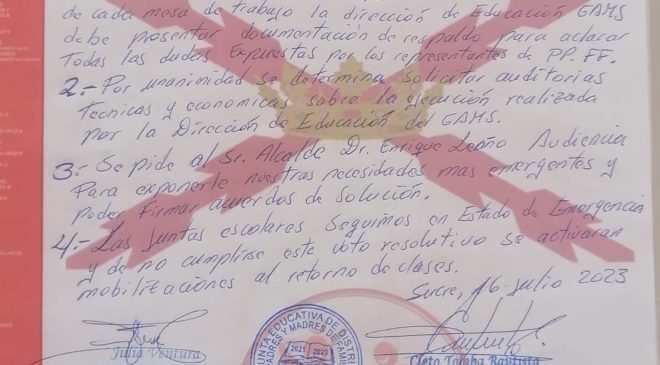 de cada mesa de trabajo la dirección de Educación GAMS
debe presentar documentación de respaldo para aclarar
Todas las dudas Expuestas por los representantes de PP.FF.
2.- Por unanimidad se determina Solicitar auditorias
Tecnicas y economicas sobre la ejecución realizada
por la Dirección de Educación del GAMS.
3.- Se pide al Sr. Alcalde Dr. Enrique Leaño Audiencia
Para exponerle nuestras necesidades mas emergentes y
poder firmar acuerdos de Solución.
4.- Las Juntas escolares Seguimos en Estado de Emergencia
y de no cumplirse este voto resolutivo se activaran
mobilizaciones al retorno de clases.
Sucre, 16 Julio 2023
JUNTA EDUCATIVA DE DISTRI
PADRES Y MADRES DE FAMIL
2021 2023
Julia Ventura
Cleto Tolaba Bautista